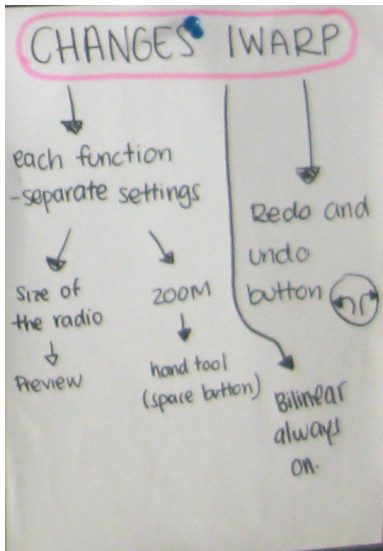 CHANGES IWARP
each function
-separate settings
Size of
the radio
Preview
ZOOM
hand tool
(space button)
Redo and
undo
button
Bilinear
always
on.